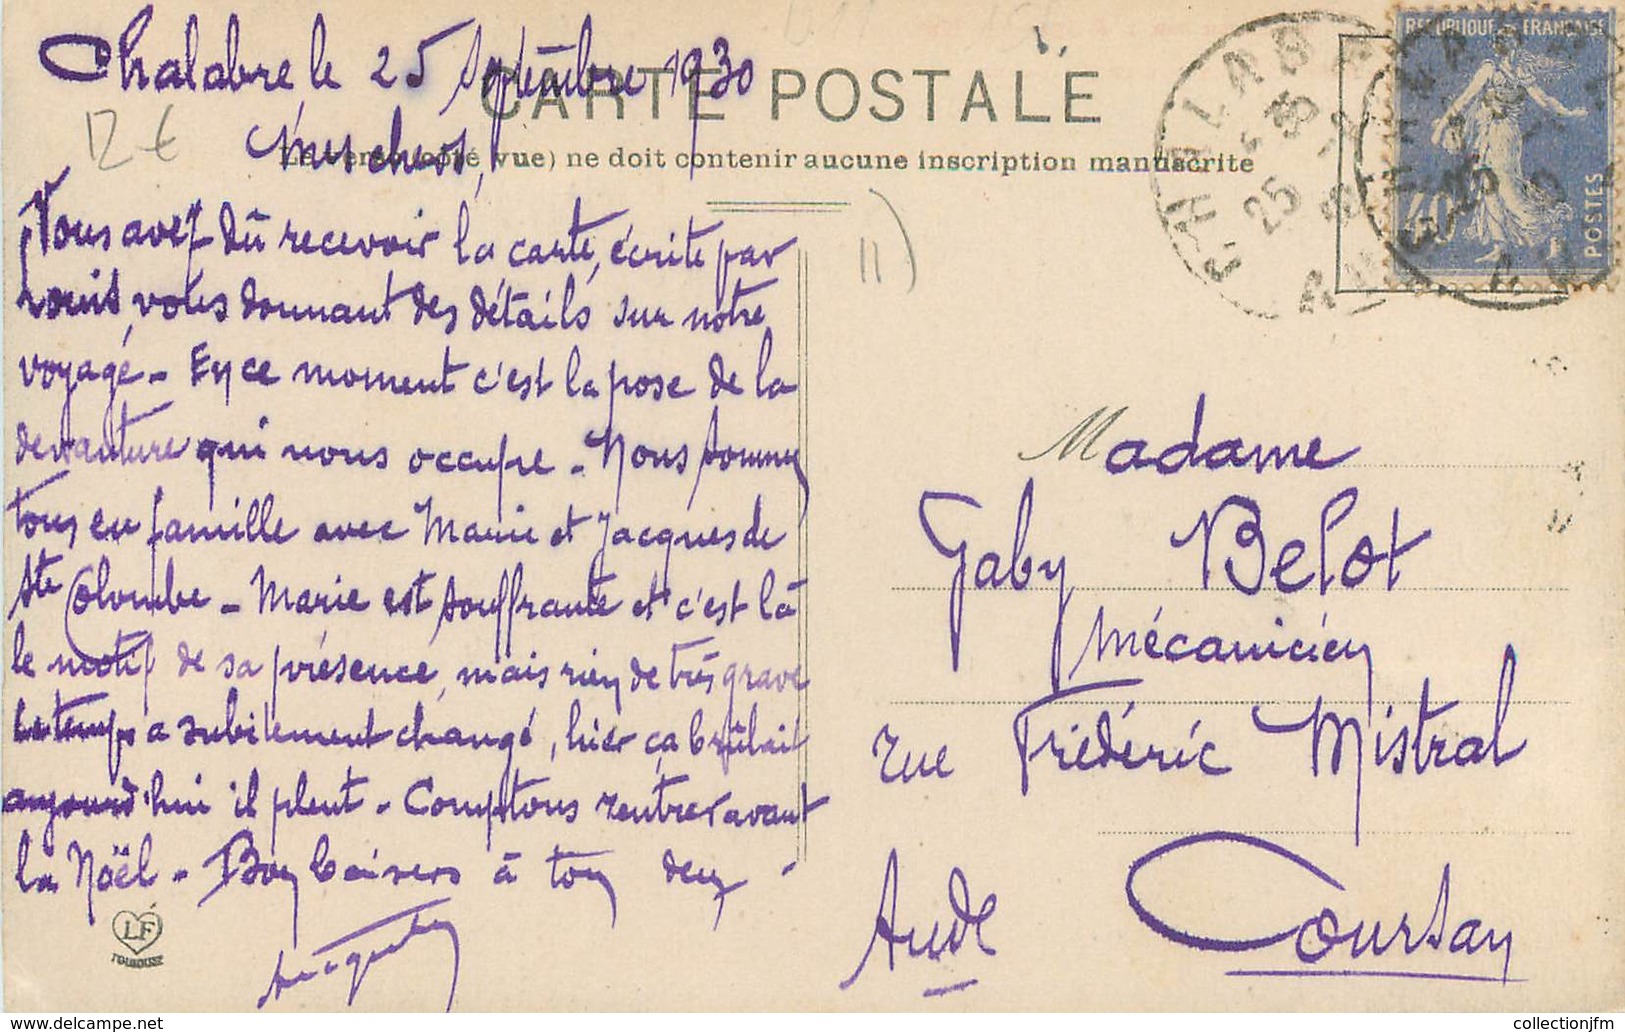 Chalabre, le 25 Septembre 1930
CARTE POSTALE
Le verso (côté vue) ne doit contenir aucune inscription manuscrite
Mes chers,
12 €
Vous avez dû recevoir la carte, écrite par
Louis, vous donnant des détails sur notre
voyage - En ce moment c'est la pose de la
devanture qui nous occupe - Nous sommes
tous en famille avec Marie et Jacques de
Ste Colombe - Marie est souffrante et c'est là
le motif de sa présence, mais rien de très grave
Le temps a subitement changé, hier ça brûlait
aujourd'hui il pleut - Comptons rentrer avant
la Noël - Bons baisers à tous deux -
LF
TOULOUSE
REPUBLIQUE FRANÇAISE
POSTES
40
CHALABRE
25
AUDE
Madame
Gaby Belot
Mécanicien
rue Frédéric Mistral
Coursan
Aude
collectionjfm